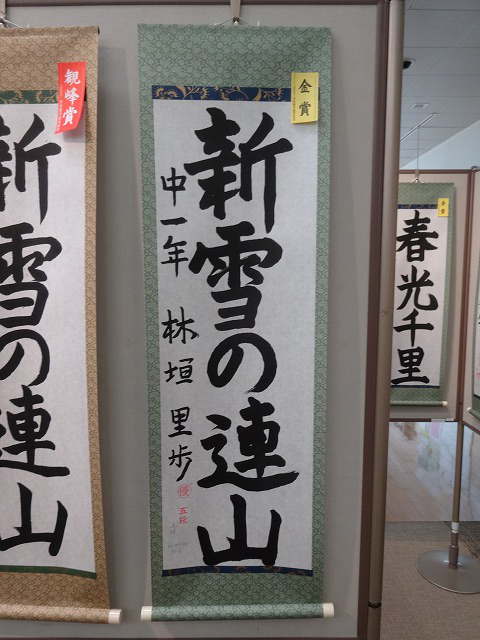 観峰賞
新雪の連山
金賞
新雪の連山
中一年 林垣里歩
優 五段
金賞
春光千里